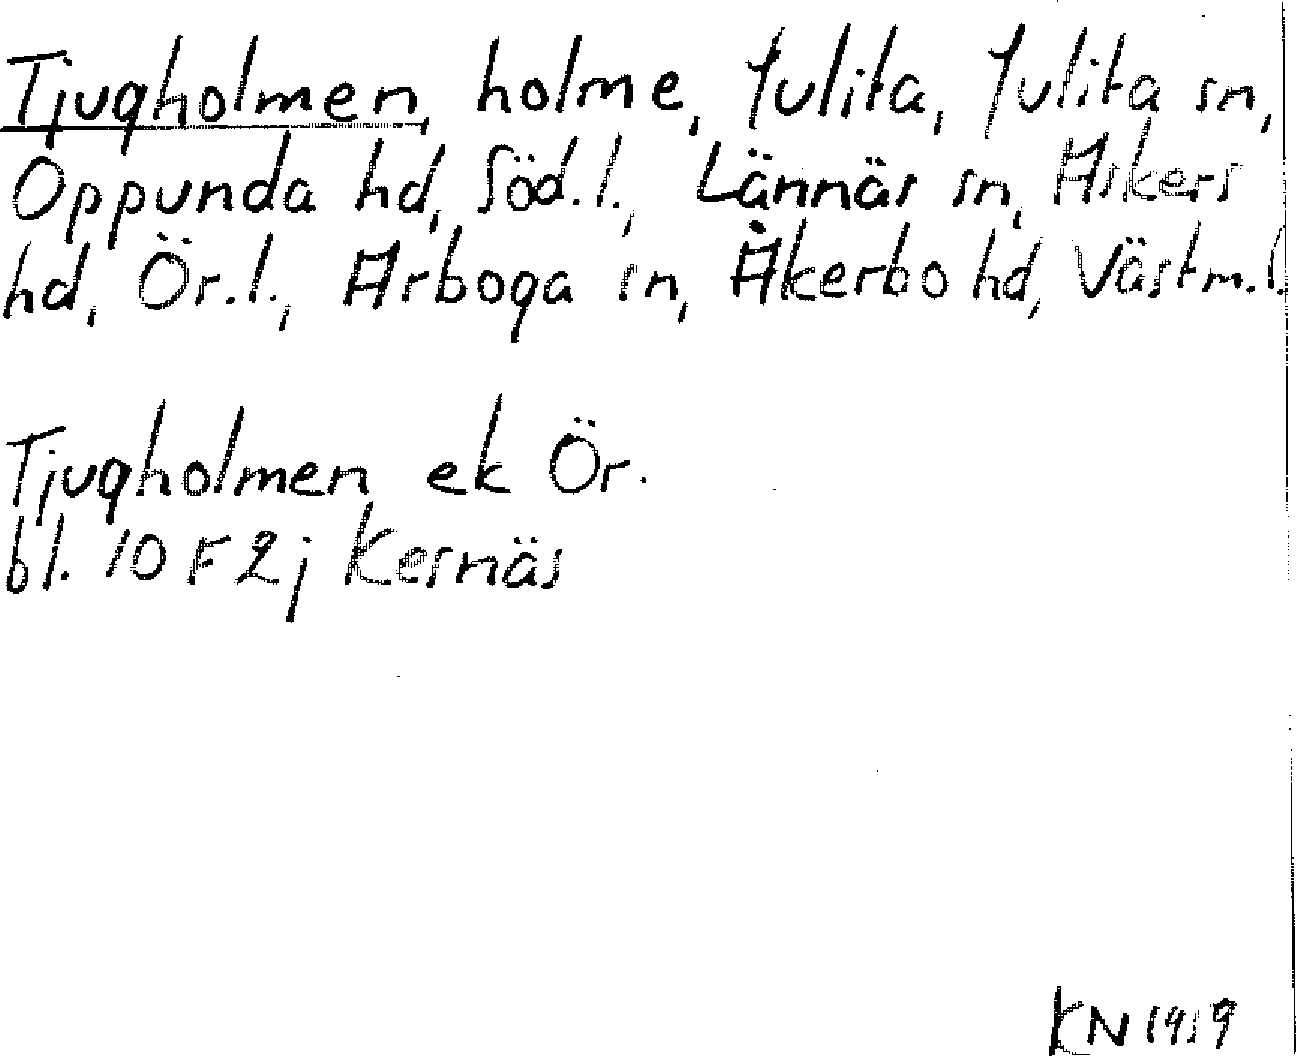 Tjugholmen, holme, Julita, Julita sn,
Oppunda hd, Söd.l., Lännäs sn, Askers
hd, Ör.l., Arboga sn, Åkerbo hd, Västm.l.
Tjugholmen ek Ör.
bl. 10 F 2 j Kesnäs
KN